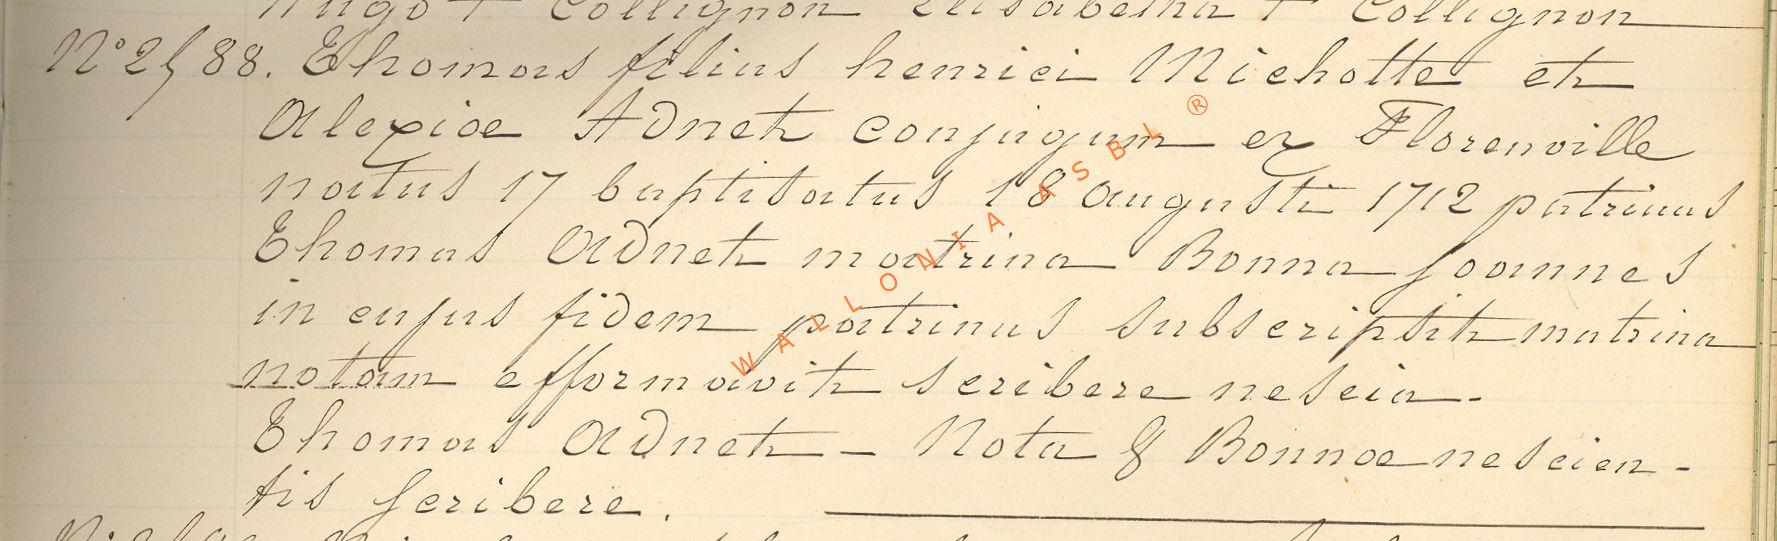 Hugo + Collignon Elisabetha + Collignon
N° 2588. Thomas filius henrici Michotte et
Alexiae Adnet conjugum ex Florenville
natus 17 baptisatus 18 augusti 1712 patrinus
Thomas Adnet matrina Bonna Joannes
in cujus fidem patrinus subscripsit matrina
notam efformavit scribere nescia.
Thomas Adnet - Nota & Bonnae nescien-
tis scribere.
WALLONIA ASBL ®